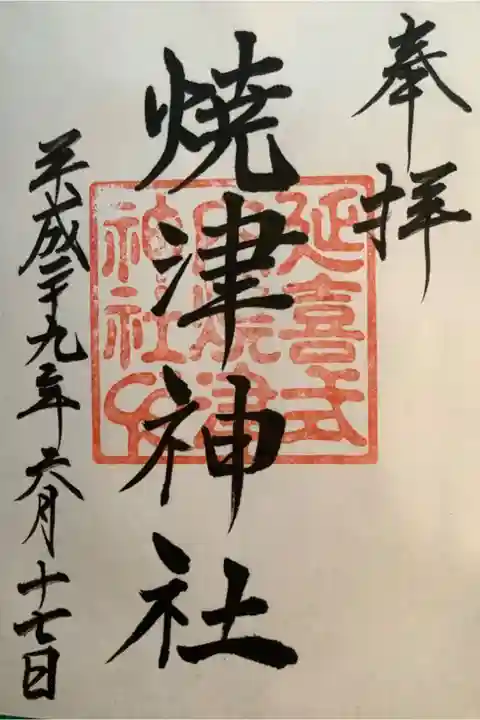 奉拝
焼津神社
平成二十九年六月十七日
延喜式
内焼津
神社印